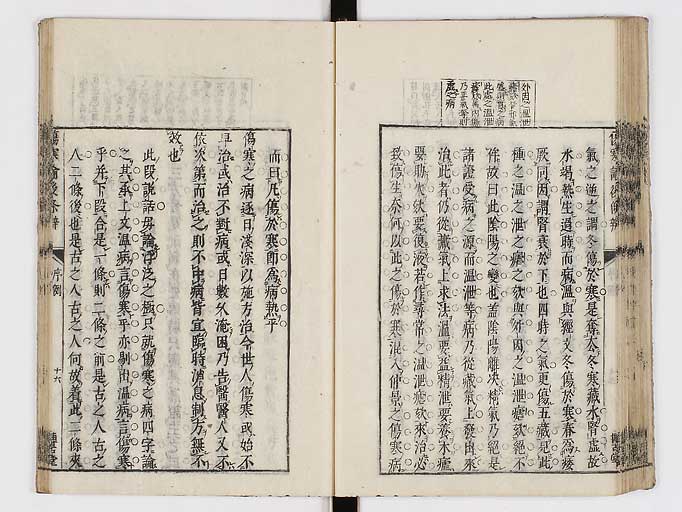 外因之温泄
此處之温泄
虛之病
氣之逆之謂冬傷於寒是奪太冬寒藏水腎虛故
水竭熱生過時而病温與經文冬傷於寒春爲痿
厥同因謂腎衰於下也四時之氣更傷五藏是此
種之温之泄之瘧之欬與外因之温泄瘧欬不
侔故曰此陰陽之變也蓋陰陽離決精氣乃絶是
諸證受病之源而温泄等病乃從藏氣上發出來
治此者仍從藏氣上求法温要益精泄要養木瘧
要助火欬要復液若作尋常之温泄瘧欬來治必
致傷生奈何以此之傷於寒混入仲景之傷寒病
而曰凡傷於寒卽爲病熱乎
傷寒之病逐日淺深以施方治今世人傷寒或始不
早治或治不對病或日數久淹困乃告醫醫人又不
依次第而治之則不中病皆宜臨時消息制方無不
效也
此段説話毋論浮泛之極只就傷寒之病四字論
之其承上文温病言傷寒乎亦剔出温病言傷寒
乎并下段合是二條則二條之前是古之人古之
人二條後也是古之人古之人何故着此二條來
傷寒論後條辨
序例
十六